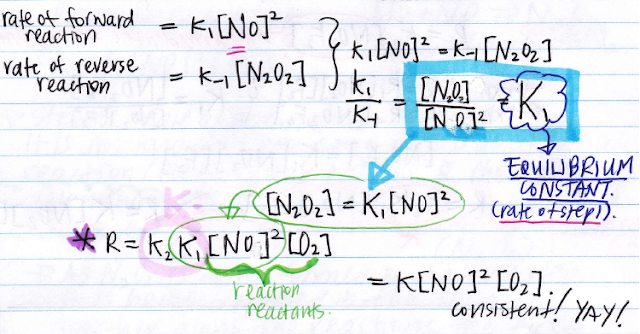 rate of forward reaction = K₁[NO]²
rate of reverse reaction = K₋₁[N₂O₂]
K₁[NO]² = K₋₁[N₂O₂]
K₁/K₋₁ = [N₂O₂]/[NO]² = K₁
EQUILIBRIUM
CONSTANT.
(rate of step 1).
[N₂O₂] = K₁[NO]²
K.
* R = K₂K₁[NO]²[O₂]
reaction
reactants.
= K[NO]²[O₂].
consistent! YAY!